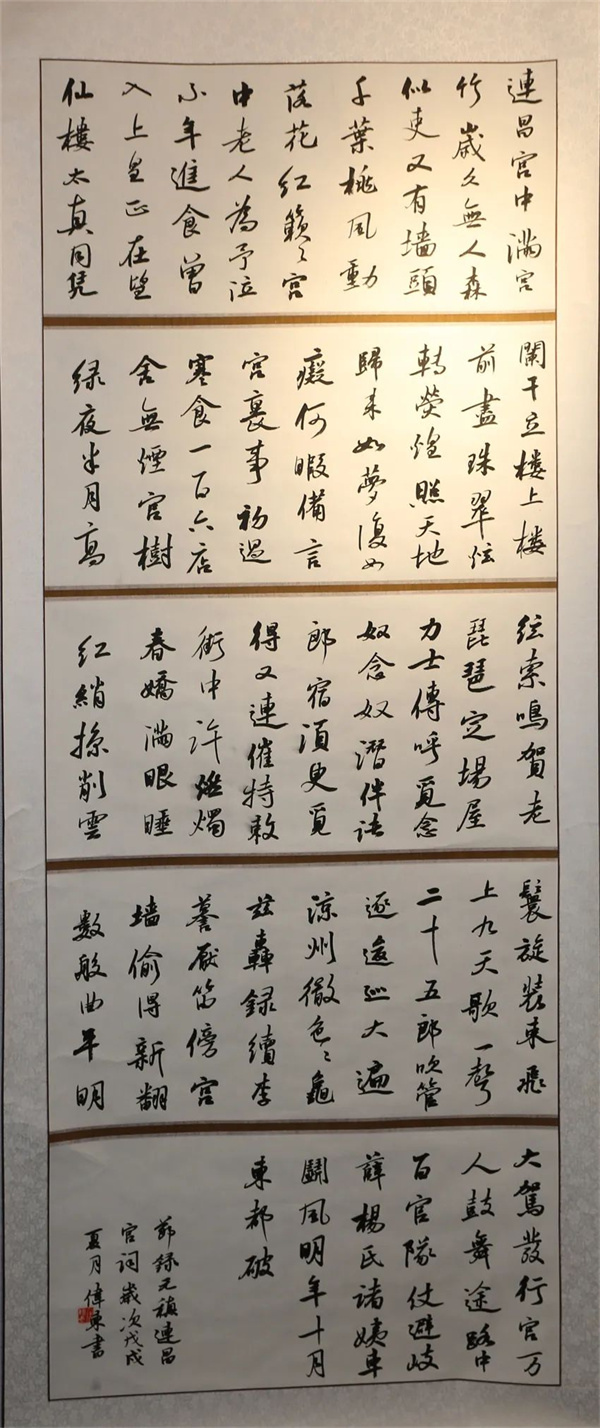 連昌宫中滿宫
竹歲久無人森
似束又有墙頭
千葉桃風動
落花紅蔌〻宫
中老人為予泣
小年進食曾
入上皇正在望
仙樓太真同凭
闌干立楼上楼
前盡珠翠炫
轉熒煌照天地
歸来如夢復如
癡何暇備言
宫裏事初過
寒食一百六店
舍無煙宫樹
绿夜半月高
弦索鳴賀老
琵琶定場屋
力士傳呼覓念
奴念奴潛伴諸
郎宿須臾覓
得又連催特敕
街中许燃燭
春嬌滿眼睡
红綃掠削雲
鬟旋裝束飛
上九天歌一聲
二十五郎吹管
逐逡巡大遍
凉州徹色〻龜
兹轟録續李
謩厭笛傍宫
墙偷得新翻
數般曲平明
大駕發行宫万
人鼓舞途路中
百官隊仗避岐
薛楊氏諸姨車
鬭風明年十月
東都破
節録元稹連昌
宫词歲次戊戌
夏月偉東書